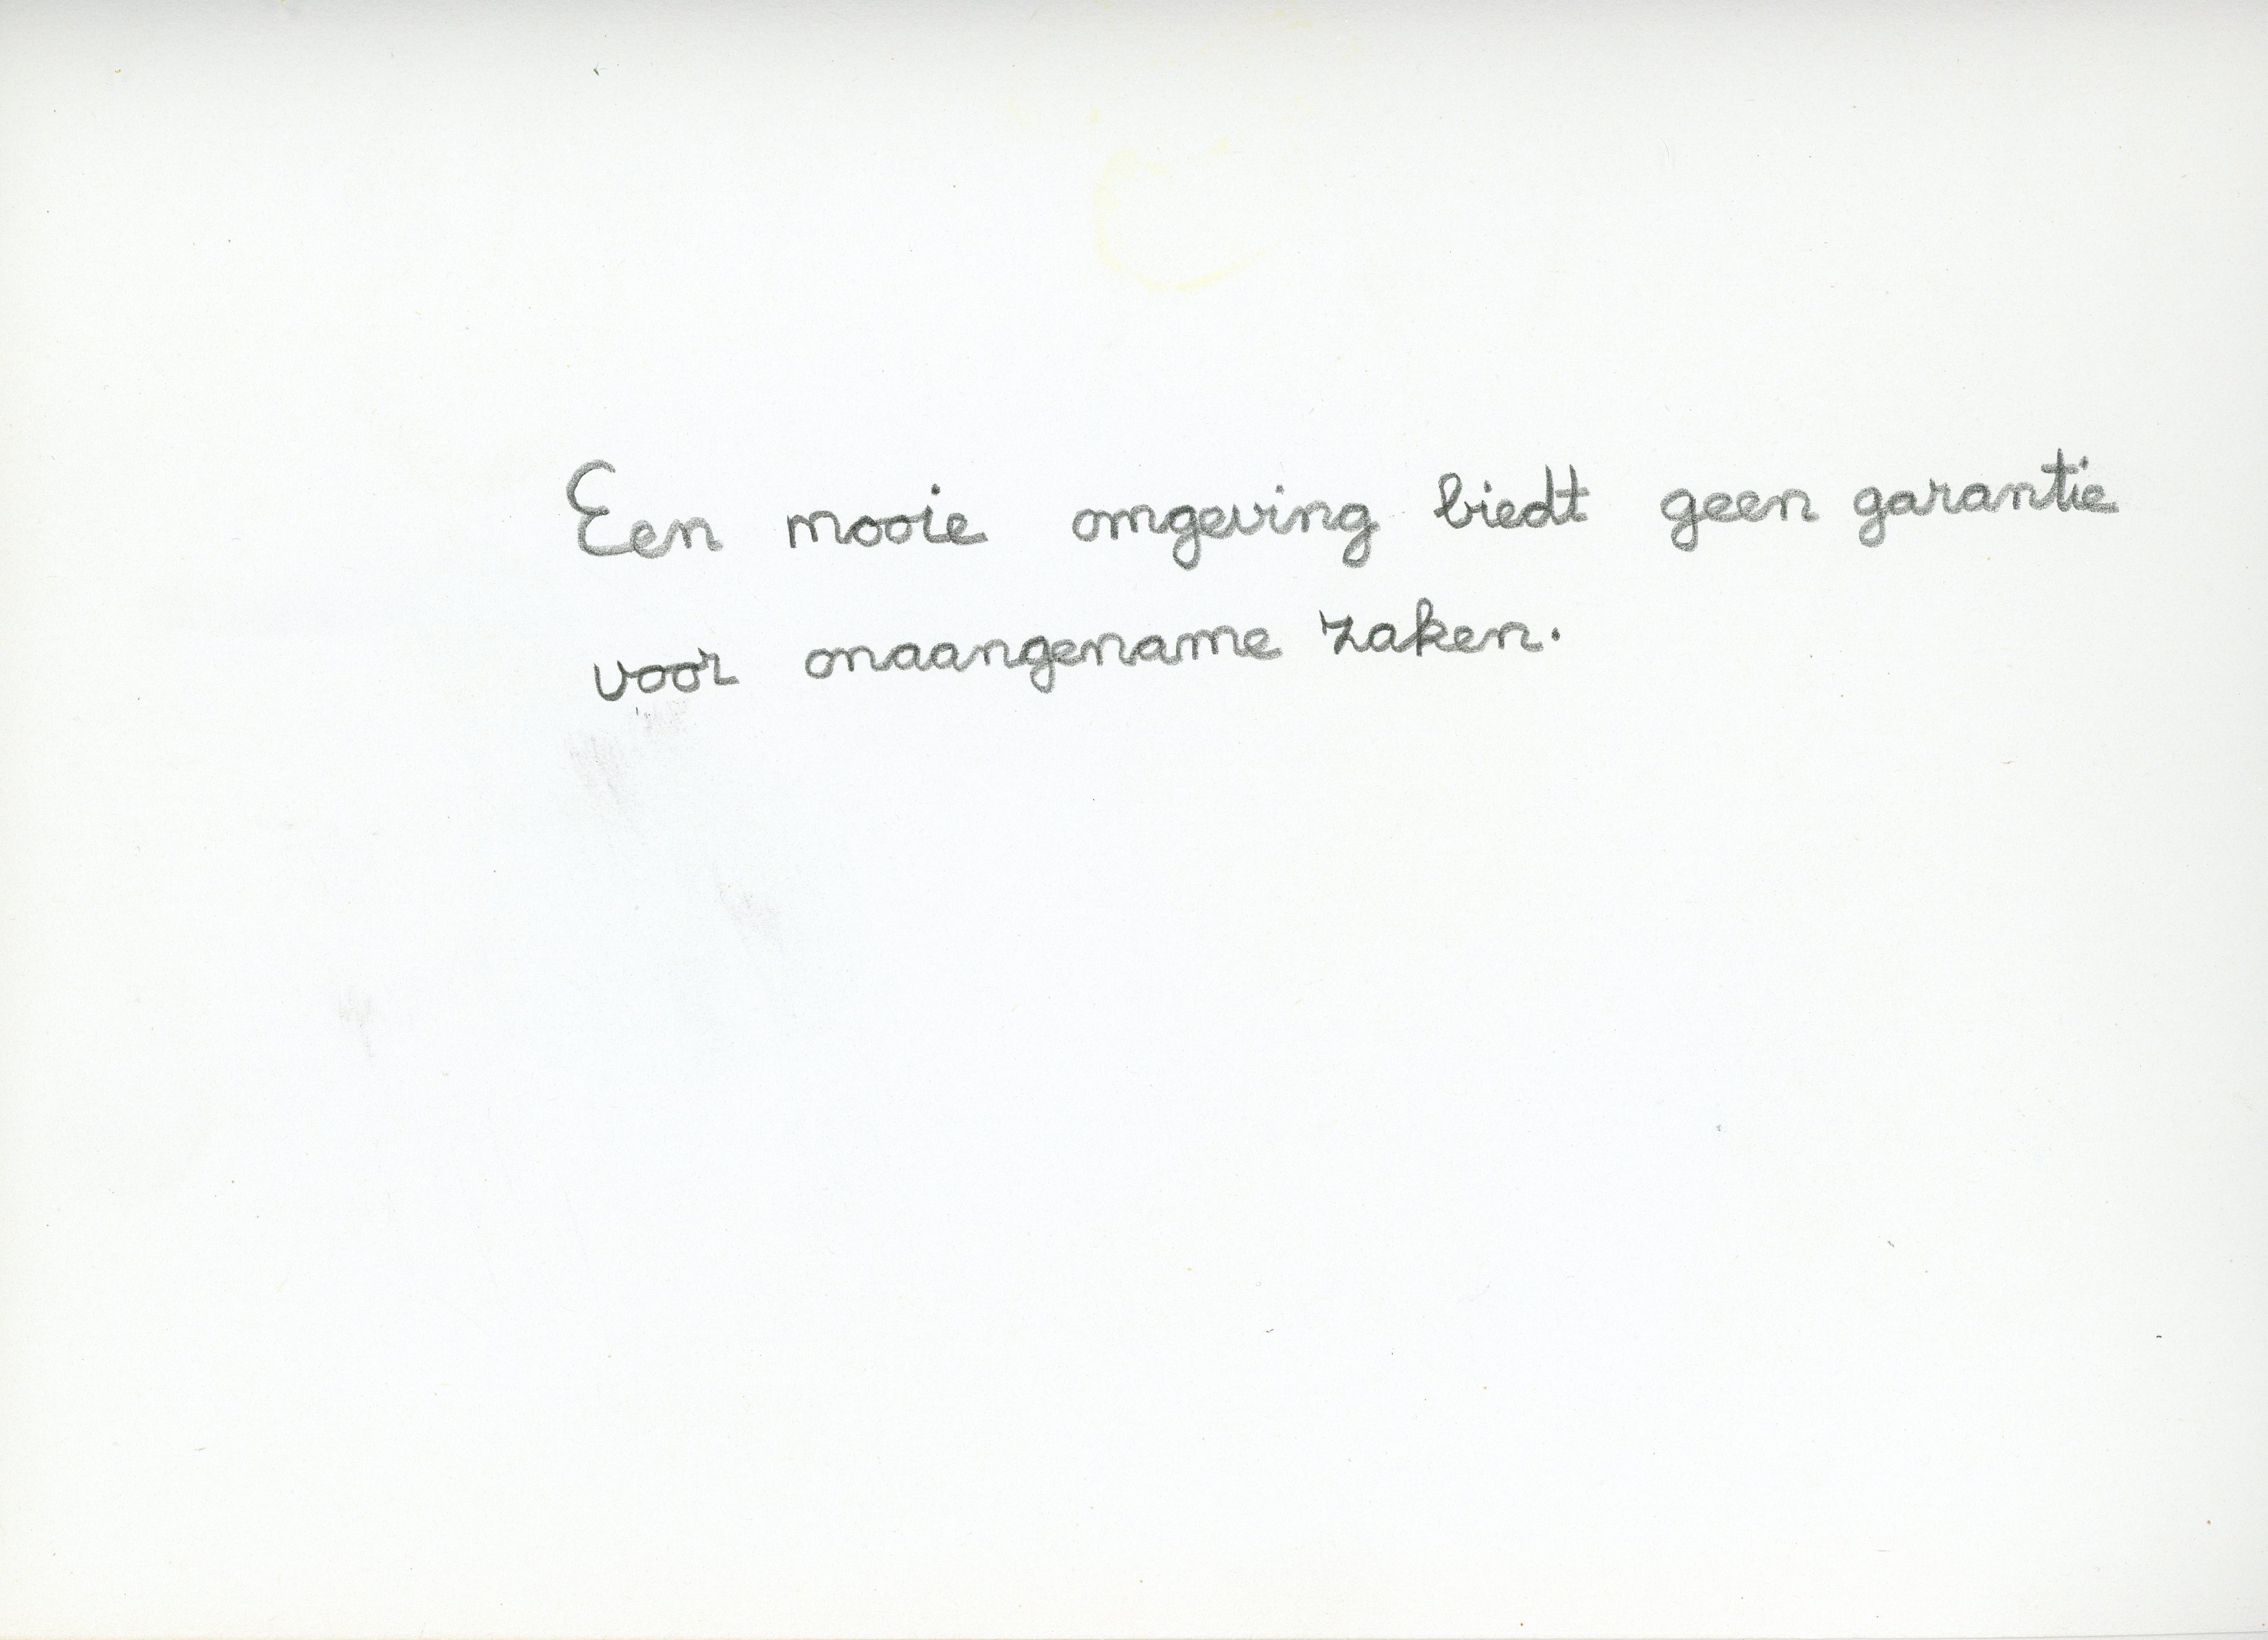 Een mooie omgeving biedt geen garantie
voor onaangename zaken.